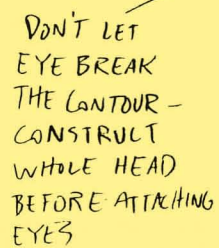 DON'T LET
EYE BREAK
THE CONTOUR –
CONSTRUCT
WHOLE HEAD
BEFORE ATTACHING
EYES